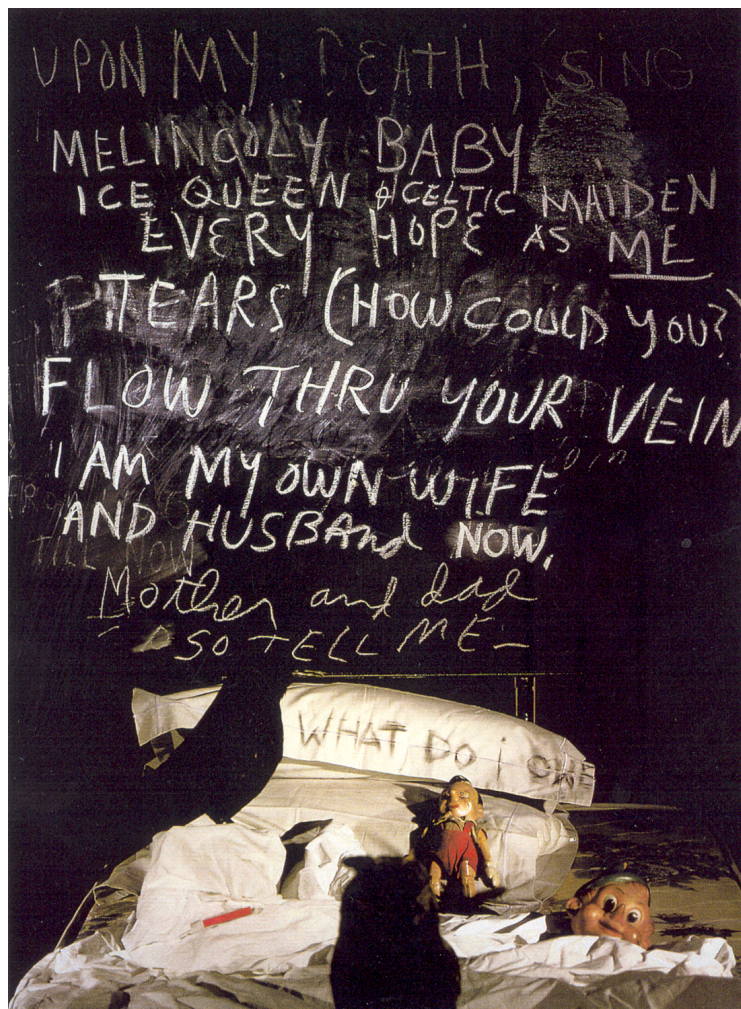 UPON MY DEATH, SING
MELINCOLY BABY
ICE QUEEN & CELTIC MAIDEN
EVERY HOPE AS ME
TEARS (HOW COULD YOU?)
FLOW THRU YOUR VEIN
I AM MY OWN WIFE
AND HUSBAND NOW,
Mother and dad
SO TELL ME—
WHAT DO i OWE